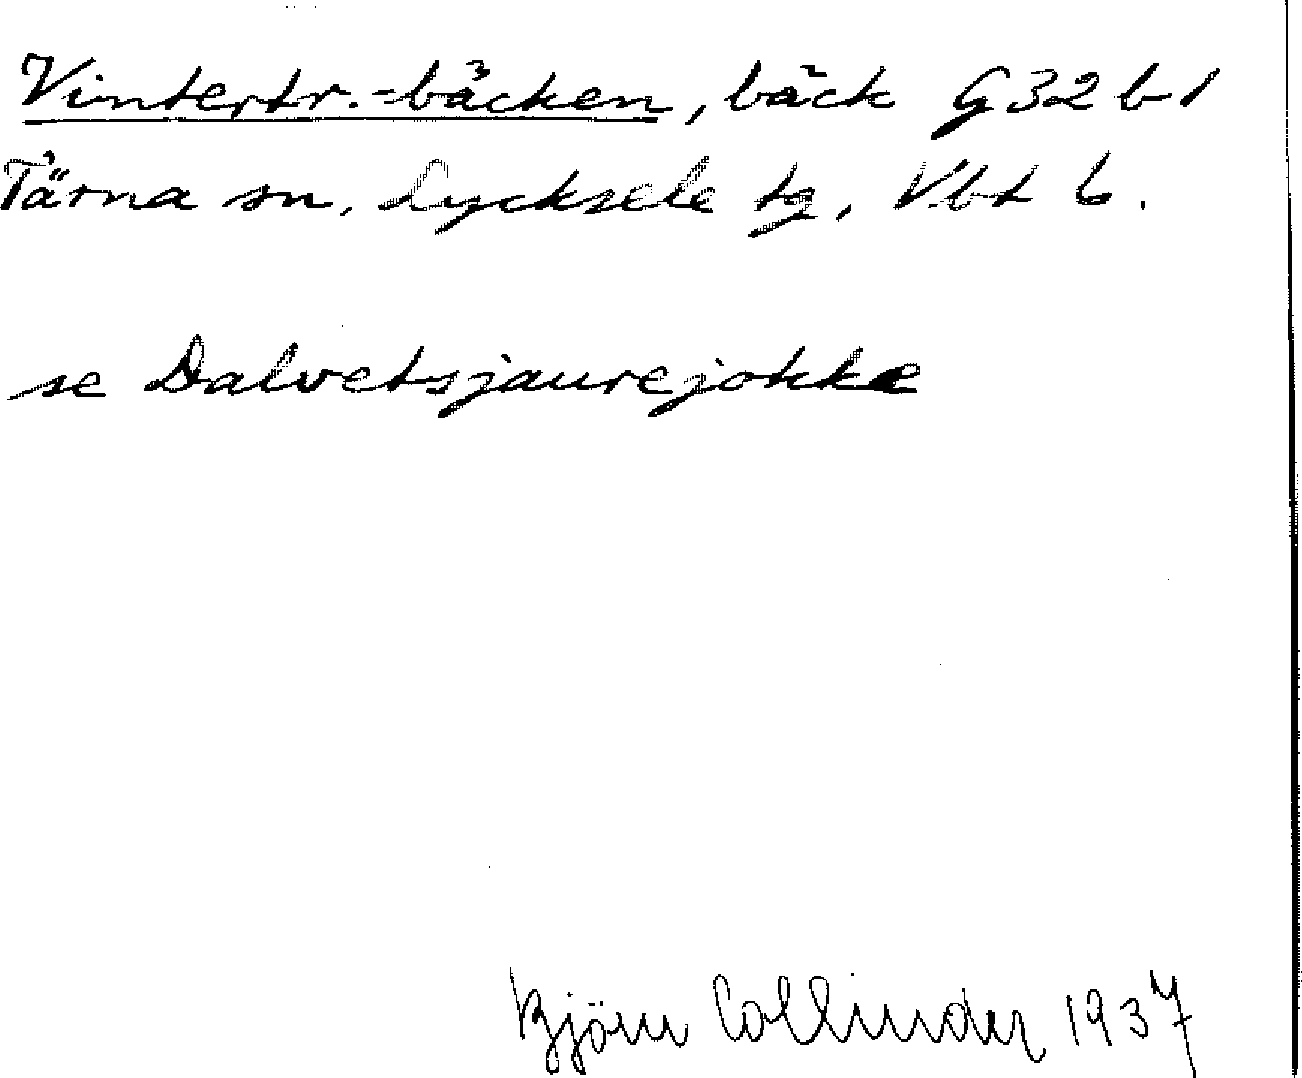 Vintertr.-bäcken, bäck G32b1
Tärna sn, Lycksele tg, Vbt l.
se Dalvetsjaurejokke
Björn Collinder 1937